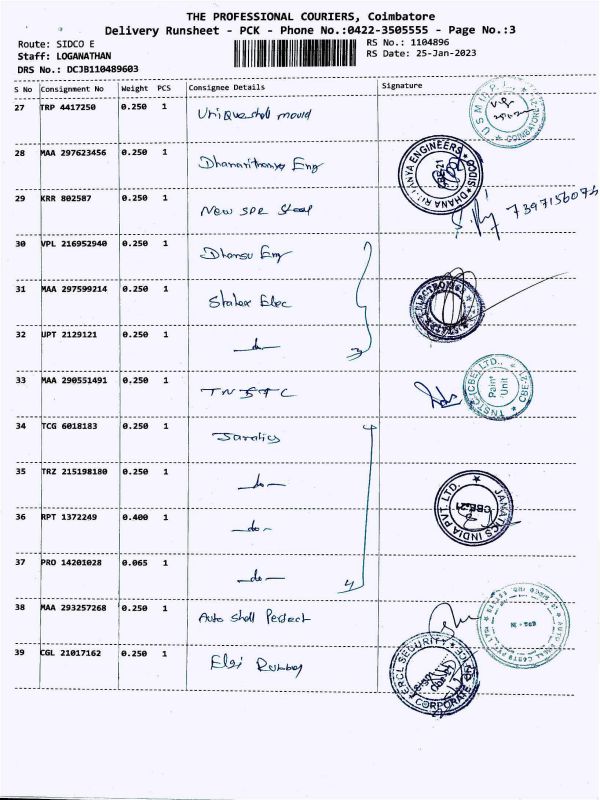 THE PROFESSIONAL COURIERS, Coimbatore
Delivery Runsheet - PCK - Phone No.:0422-3505555 - Page No.:3
Route: SIDCO E
RS No.: 1104896
Staff: LOGANATHAN
RS Date: 25-Jan-2023
DRS No.: DCJB110489603
S No Consignment No Weight PCS Consignee Details Signature
27 TRP 4417250 0.250 1 Unique shell mould
28 MAA 297623456 0.250 1 Dhananthanya Eng
29 KRR 802587 0.250 1 New SPR Steel
7397156076
30 VPL 216952940 0.250 1 Dhansu Eng
31 MAA 297599214 0.250 1 Statex Elec
32 UPT 2129121 0.250 1 -do-
3
33 MAA 290551491 0.250 1 TNSTC
TNSTC (CBE) LTD., CBE-21
Paint Unit
34 TCG 6018183 0.250 1 Janatics
35 TRZ 215198180 0.250 1 -do-
JANATICS INDIA PVT. LTD.
CBE-21
36 RPT 1372249 0.400 1 -do-
37 PRO 14201028 0.065 1 -do-
4
38 MAA 293257268 0.250 1 Auto Shell Perfect
39 CGL 21017162 0.250 1 Elgi Rubber
SECURITY
CORPORATE